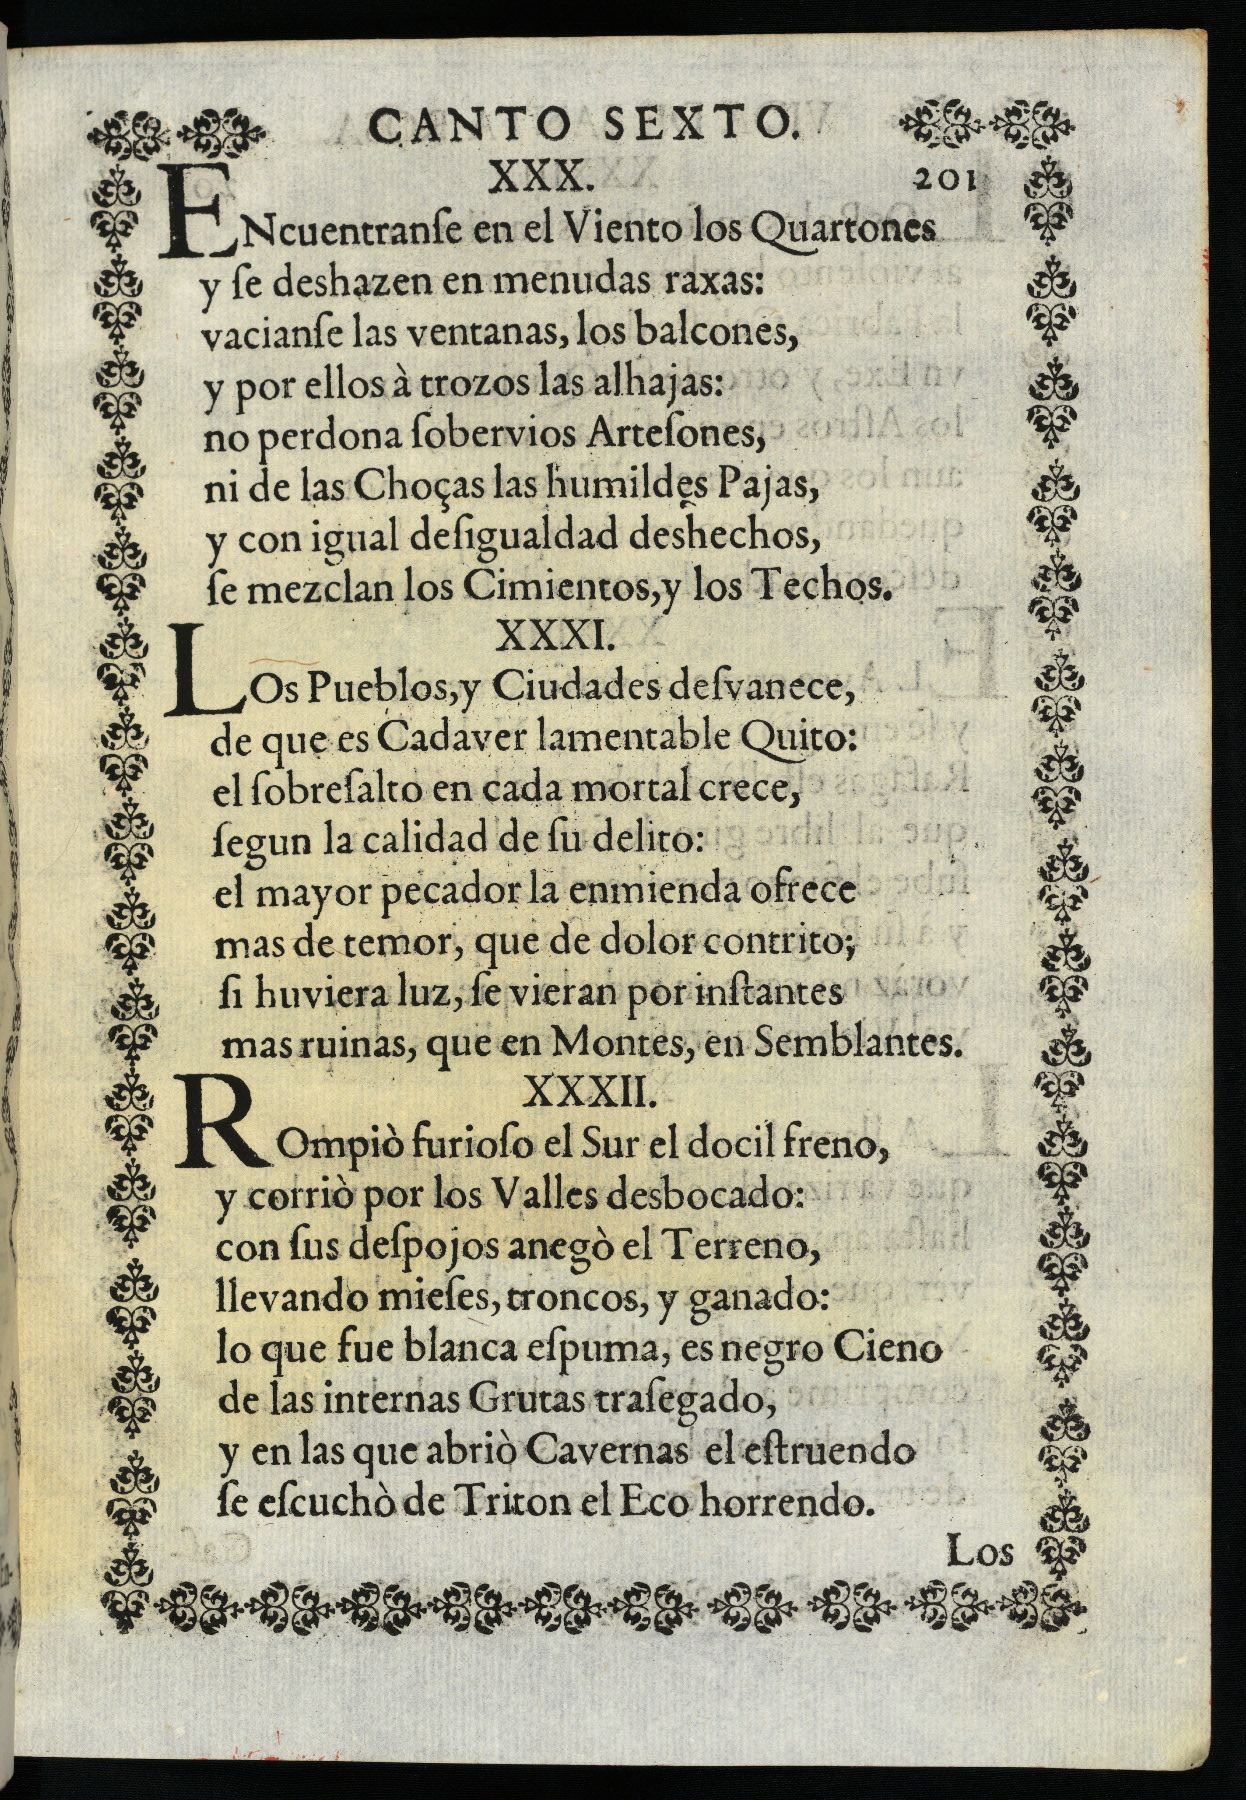 CANTO SEXTO.
XXX. 201
ENcuentranſe en el Viento los Quartones
y ſe deshazen en menudas raxas:
vacianſe las ventanas, los balcones,
y por ellos à trozos las alhajas:
no perdona ſobervios Arteſones,
ni de las Choças las humildes Pajas,
y con igual deſigualdad deshechos,
ſe mezclan los Cimientos,y los Techos.
XXXI.
LOs Pueblos,y Ciudades deſvanece,
de que es Cadaver lamentable Quito:
el ſobreſalto en cada mortal crece,
ſegun la calidad de ſu delito:
el mayor pecador la enmienda ofrece
mas de temor, que de dolor contrito;
ſi huviera luz, ſe vieran por inſtantes
mas ruinas, que en Montes, en Semblantes.
XXXII.
ROmpiò furioſo el Sur el docil freno,
y corriò por los Valles desbocado:
con ſus deſpojos anegò el Terreno,
llevando mieſes, troncos, y ganado:
lo que fue blanca eſpuma, es negro Cieno
de las internas Grutas traſegado,
y en las que abriò Cavernas el eſtruendo
ſe eſcuchò de Triton el Eco horrendo.
Los